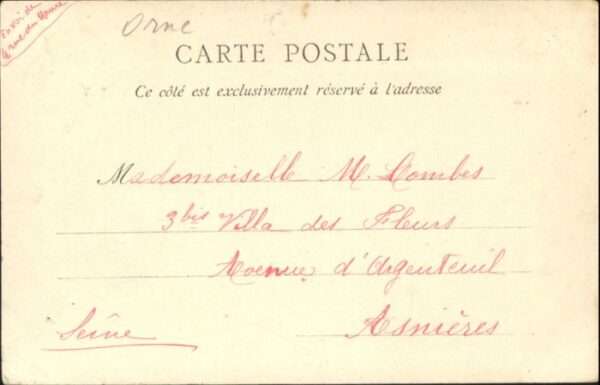 Envoi de
rue du
Orne
CARTE POSTALE
Ce côté est exclusivement réservé à l'adresse
Mademoiselle M. Combes
3bis Villa des Fleurs
Avenue d'Argenteuil
Seine Asnières